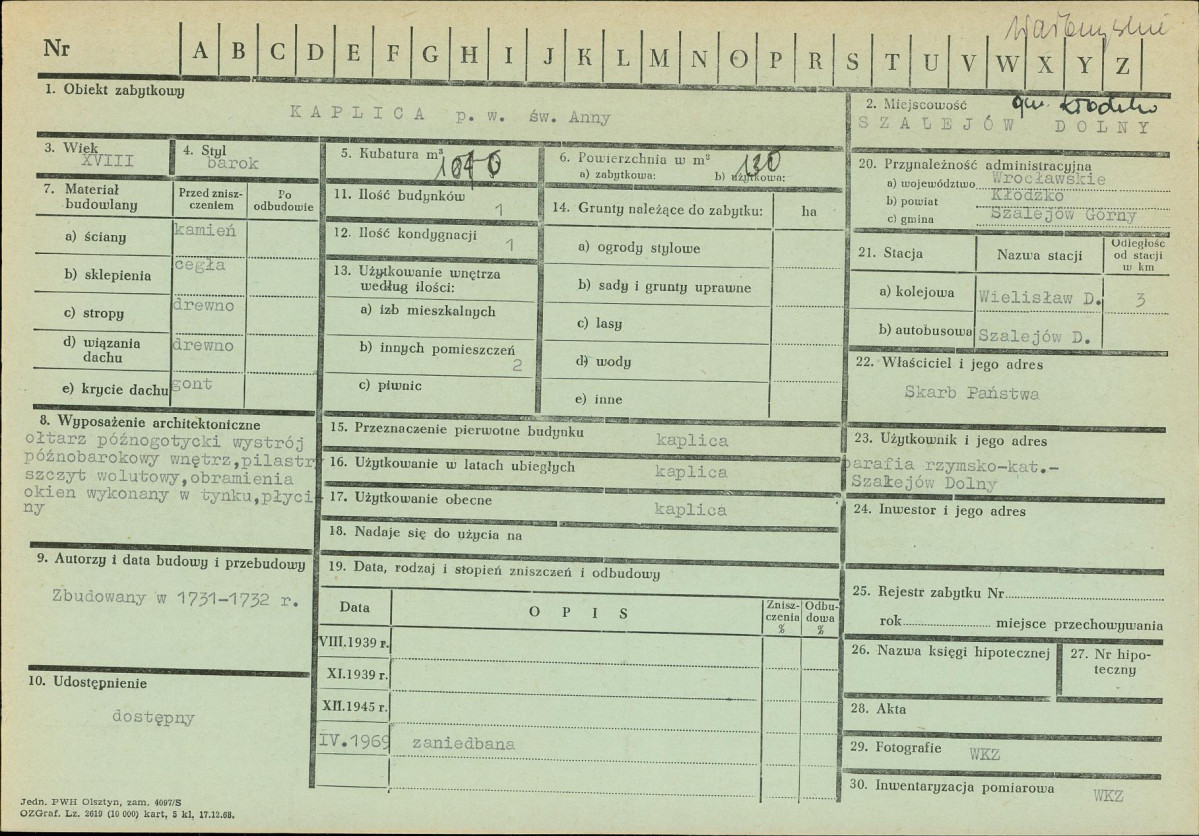 Wałbrzyskie
Nr A B C D E F G H I J K L M N O P R S T U V W X Y Z
1. Obiekt zabytkowy
KAPLICA p. w. św. Anny
2. Miejscowość gm. Kłodzko
SZALEJÓW DOLNY
3. Wiek
XVIII
4. Styl
barok
5. Kubatura m³
6. Powierzchnia w m² 130
a) zabytkowa: b) użytkowa:
7. Materiał budowlany
Przed zniszczeniem
Po odbudowie
a) ściany kamień
b) sklepienia cegła
c) stropy drewno
d) wiązania dachu drewno
e) krycie dachu gont
11. Ilość budynków 1
12. Ilość kondygnacji 1
13. Użytkowanie wnętrza
według ilości:
a) izb mieszkalnych
b) innych pomieszczeń 2
c) piwnic
14. Grunty należące do zabytku: ha
a) ogrody stylowe
b) sady i grunty uprawne
c) lasy
d) wody
e) inne
20. Przynależność administracyjna
a) województwo Wrocławskie
b) powiat Kłodzko
c) gmina Szalejów Górny
21. Stacja Nazwa stacji Odległość od stacji w km
a) kolejowa Wielisław D. 3
b) autobusowa Szalejów D.
22. Właściciel i jego adres
Skarb Państwa
8. Wyposażenie architektoniczne
ołtarz późnogotycki wystrój
późnobarokowy wnętrz,pilastr
szczyt wolutowy,obramienia
okien wykonany w tynku,płyci
ny
15. Przeznaczenie pierwotne budynku kaplica
16. Użytkowanie w latach ubiegłych kaplica
17. Użytkowanie obecne kaplica
18. Nadaje się do użycia na
23. Użytkownik i jego adres
parafia rzymsko-kat.-
Szalejów Dolny
24. Inwestor i jego adres
9. Autorzy i data budowy i przebudowy
Zbudowany w 1731-1732 r.
10. Udostępnienie
dostępny
19. Data, rodzaj i stopień zniszczeń i odbudowy
Data OPIS Zniszczenia % Odbudowa %
VIII.1939 r.
XI.1939 r.
XII.1945 r.
IV.1969 zaniedbana
25. Rejestr zabytku Nr
rok miejsce przechowywania
26. Nazwa księgi hipotecznej
27. Nr hipoteczny
28. Akta
29. Fotografie WKZ
30. Inwentaryzacja pomiarowa WKZ
Jedn. PWH Olsztyn, zam. 4097/S
OZGraf. Lz. 2619 (10 000) kart, 5 kl, 17.12.68.